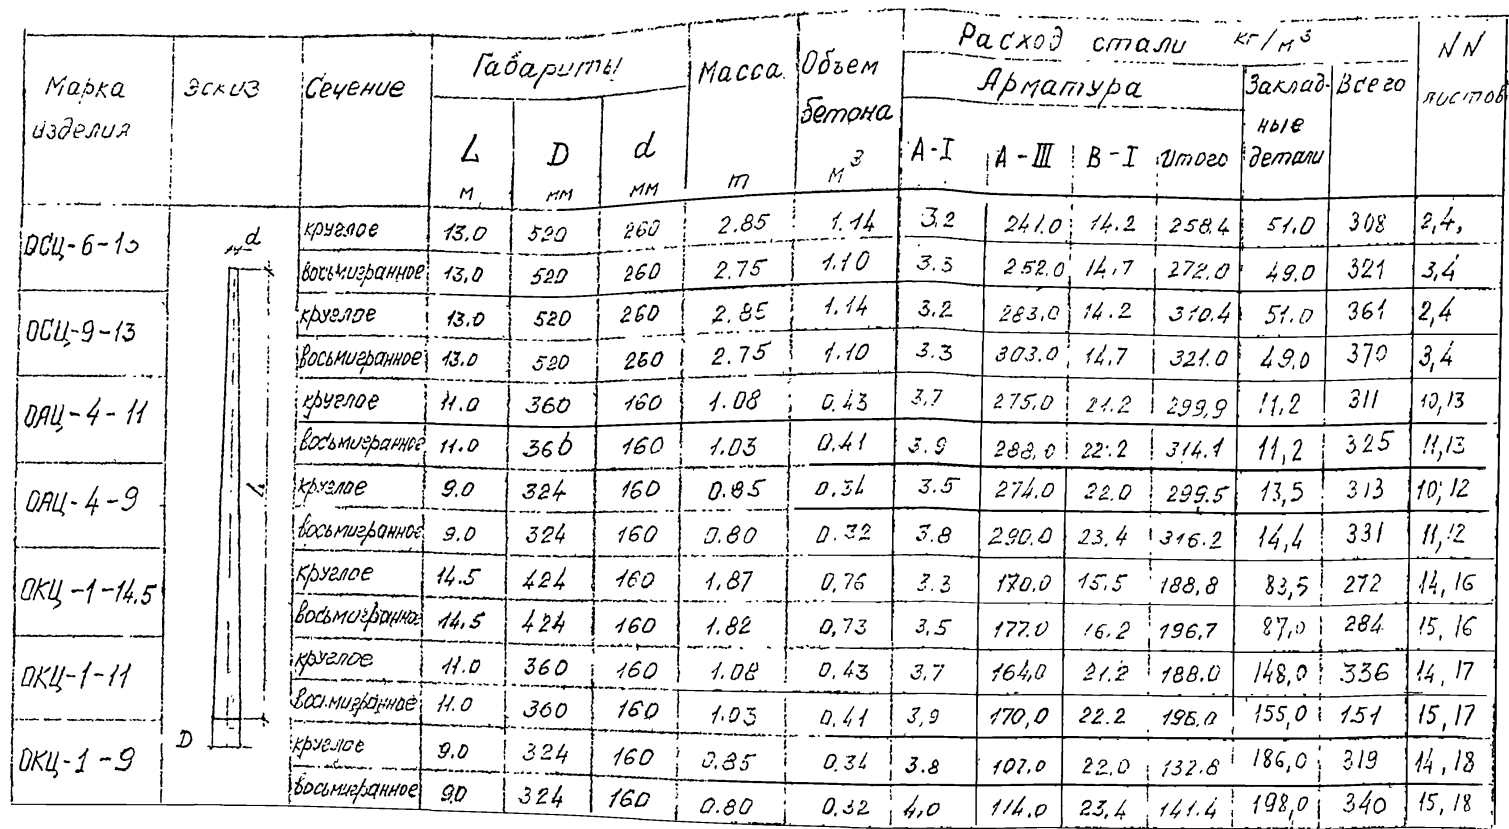 Марка изделия Эскиз Сечение Габариты Масса Объем бетона Расход стали кг/м³ NN листов
Арматура Закладные детали Всего
L D d A-I A-III B-I Итого
м мм мм т м³
ОСЦ-6-13 круглое 13.0 520 260 2.85 1.14 3.2 241.0 14.2 258.4 51.0 308 2,4,
восьмигранное 13,0 520 260 2.75 1.10 3.3 252.0 14,7 272.0 49.0 321 3,4
ОСЦ-9-13 круглое 13.0 520 260 2.85 1.14 3.2 283.0 14.2 310.4 51.0 361 2,4
восьмигранное 13.0 520 260 2.75 1.10 3.3 303.0 14,7 321.0 49,0 370 3,4
ОАЦ-4-11 круглое 11.0 360 160 1.08 0.43 3,7 275.0 21.2 299,9 11,2 311 10,13
восьмигранное 11.0 360 160 1.03 0.41 3.9 288,0 22.2 314.1 11,2 325 11,13
ОАЦ-4-9 круглое 9.0 324 160 0.85 0.34 3.5 274.0 22.0 299.5 13,5 313 10,12
восьмигранное 9.0 324 160 0.80 0.32 3.8 290.0 23.4 316.2 14,4 331 11,12
ОКЦ-1-14.5 круглое 14.5 424 160 1,87 0,76 3.3 170.0 15.5 188,8 83,5 272 14,16
восьмигранное 14.5 424 160 1.82 0,73 3,5 177.0 16.2 196,7 87,0 284 15,16
ОКЦ-1-11 круглое 11.0 360 160 1.08 0.43 3,7 164,0 21.2 188.0 148,0 336 14,17
восьмигранное 11.0 360 160 1.03 0.41 3,9 170,0 22.2 196.0 155,0 151 15,17
ОКЦ-1-9 круглое 9.0 324 160 0.85 0.34 3.8 107.0 22.0 132.8 186,0 319 14,18
восьмигранное 9.0 324 160 0.80 0.32 4,0 114.0 23,4 141.4 198,0 340 15,18
d
L
D